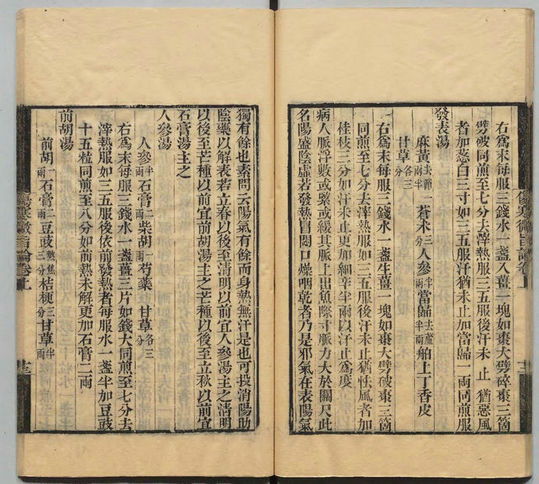 右爲末每服三錢水一盞入薑一塊如棗大擘碎棗三箇
擘破同煎至七分去滓熱服三五服後汗未止猶惡風
者加葱白三寸如三五服汗猶未止加當歸一兩同煎服
發表湯
麻黃 蒼朮 人參 當歸 舶上丁香皮
甘草各三分
右爲末每服三錢水一盞生薑一塊如棗大擘破棗三箇
同煎至七分去滓熱服如三五服後汗未止猶怯風者加
桂枝三分如汗未止更加細辛半兩以汗止爲度
病人脈浮數或緊或緩其脈上出魚際寸脈力大於關尺此
名陽盛陰虛若發熱冒悶口燥咽乾者乃是邪氣在表陽氣
獨有餘也素問云陽氣有餘而身熱無汗是也可投消陽助
陰藥以解表若立春以後至清明以前宜人參湯主之清明
以後至芒種以前宜前胡湯主之芒種以後至立秋以前宜
石膏湯主之
人參湯
人參半兩 石膏二兩 柴胡一兩 芍藥 甘草各三分
右爲末每服三錢水一盞薑三片如錢大同煎至七分去
滓熱服如三五服後依前發熱者每服水一盞半加豆豉
十五粒同煎至八分如前熱未解更加石膏二兩
前胡湯
前胡一兩 石膏二兩 豆豉 桔梗三分 甘草半兩